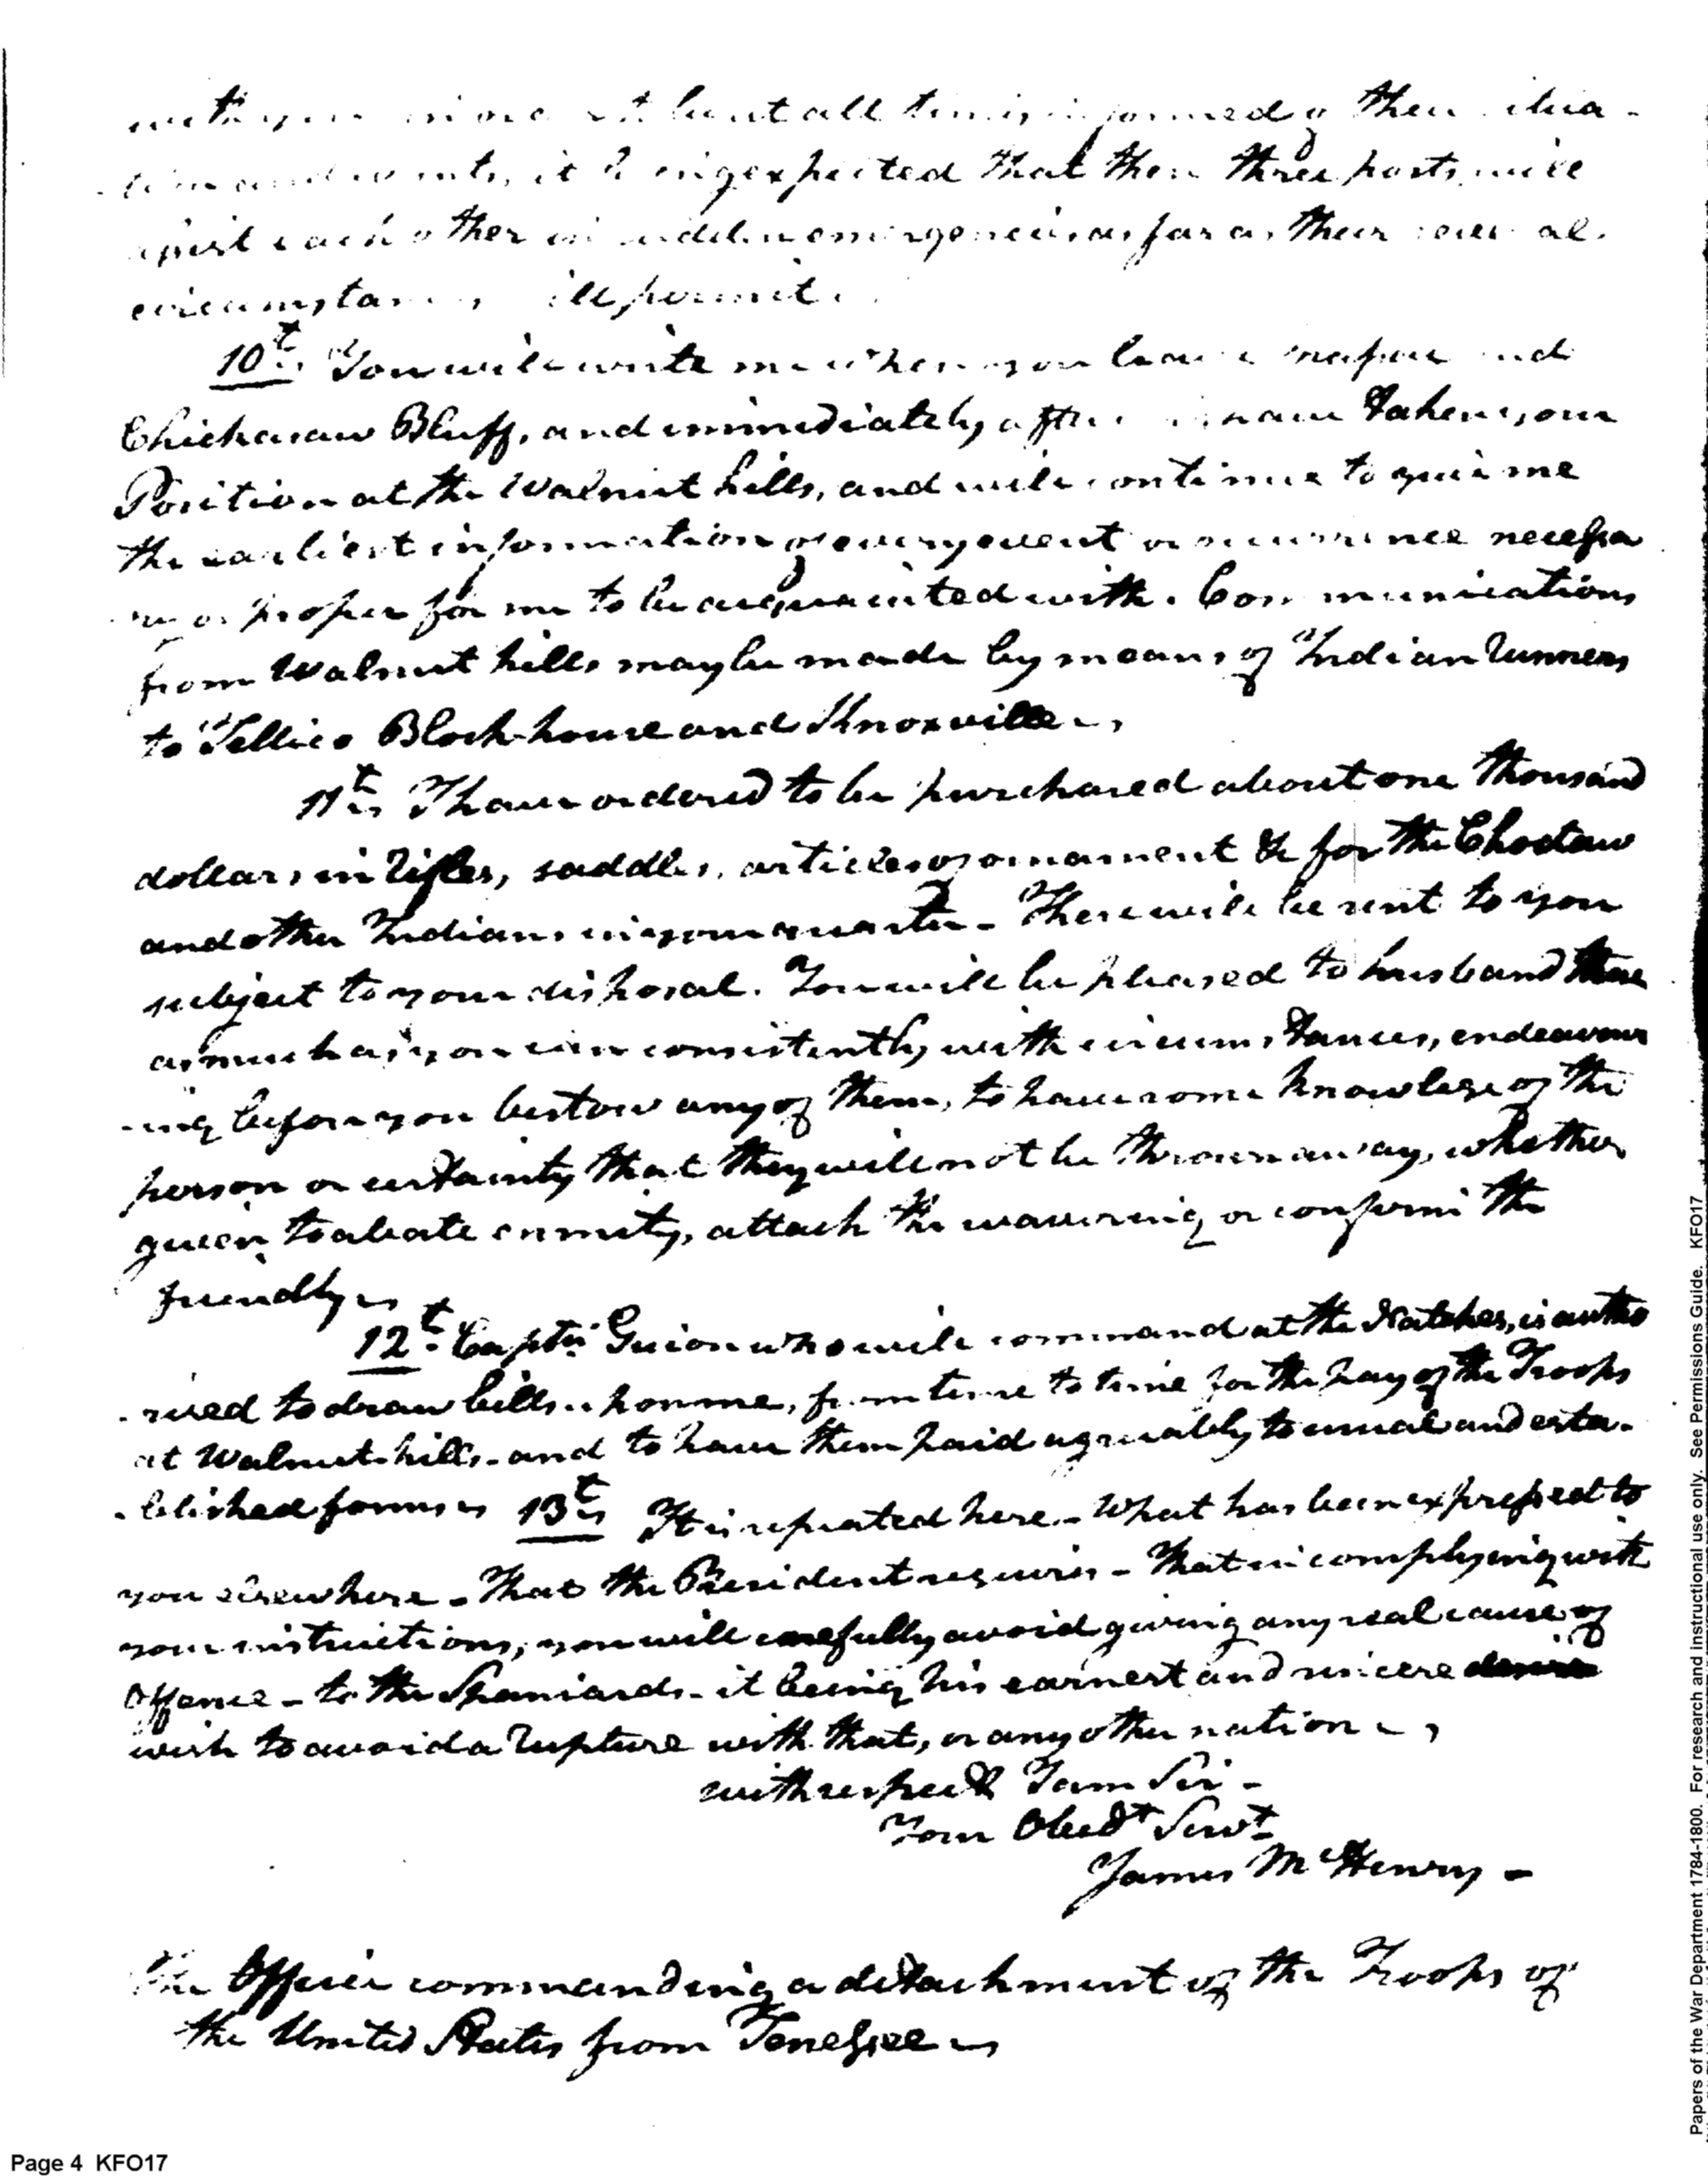 all times informed of their situa-
tion and events, it being expected that these three posts will
assist each other in sudden emergencies as far as their several
circumstances will permit.
10t. You will write me when you leave and
Chickasaw Bluff, and immediately after have taken your
Position at the Walnut hills, and will continue to give me
the earliest information of every event or occurrence necessa
ry or proper for me to be acquainted with. Communications
from Walnut hills may be made by means of Indian Runners
to Tellico Block-house and Knoxville.
11t. I have ordered to be purchased about one thousand
dollars in Rifles, saddles, articles of ornament &c for the Choctaw
and other Indians in your quarter - These will be sent to you
subject to your disposal. You will be pleased to husband these
as much as you can consistently with circumstances, endeavour
-ing before you bestow any of them, to have some knowlege of the
person or certainty that they will not be thrown away, whether
given to abate enmity, attach the wavering or confirm the
friendly
12t. Captn. Guion who will command at the Natches, is autho
-rised to draw bills upon me, from time to time for the pay of the Troops
at Walnut-hills - and to have them paid agreeably to usual and esta-
-blished forms 13t. It is repeated here - What has been expressed to
you elsewhere - That the President requires - That in complying with
your instructions, you will carefully avoid giving any real cause of
Offence - to the Spaniards - it being his earnest and sincere desire
wish to avoid a Rupture with that, or any other nation
with respect I am Sir -
Your Obedt Servt
James McHenry -
The Officer commanding a detachment of the Troops of
the United States from Tenessee
Page 4 KFO17
Papers of the War Department 1784-1800. For research and instructional use only. See Permissions Guide. KFO17